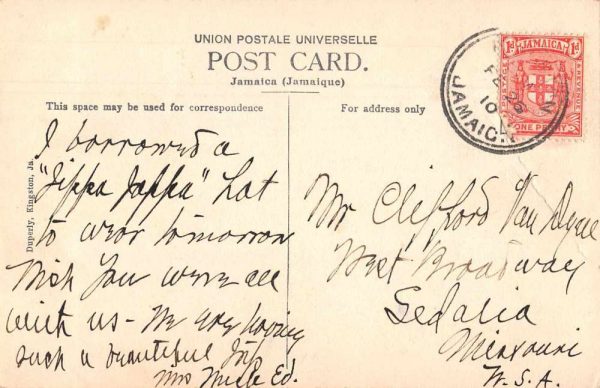 UNION POSTALE UNIVERSELLE
POST CARD.
Jamaica (Jamaique)
This space may be used for correspondence
For address only
Duperly, Kingston, Ja
JAMAICA
1d JAMAICA 1d
POSTAGE & REVENUE
ONE PENNY
FE 25
10
JAMAICA
I borrowed a
"Jippa Jappa" hat
to wear tomorrow
Wish you were all
with us - We are having
such a beautiful trip
Mrs Ed.
Mr Clifford Van Dyne
West Broadway
Sedalia
Missouri
U.S.A.